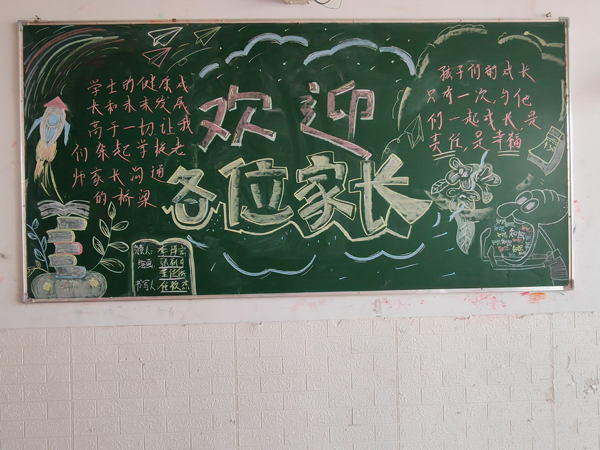 学生的健康成
长和未来发展
高于一切让我
们架起学校老
师家长沟通
的桥梁
欢迎
各位家长
孩子们的成长
只有一次,与他
们一起成长是
责任,是幸福
绘画
书写人